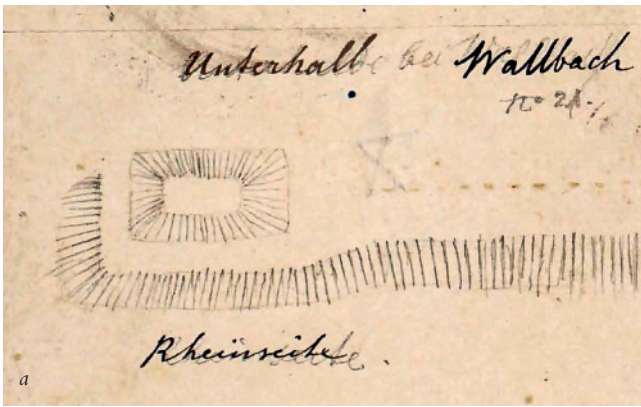 Unterhalb bei Wallbach
No 21.
Rheinseite.
a